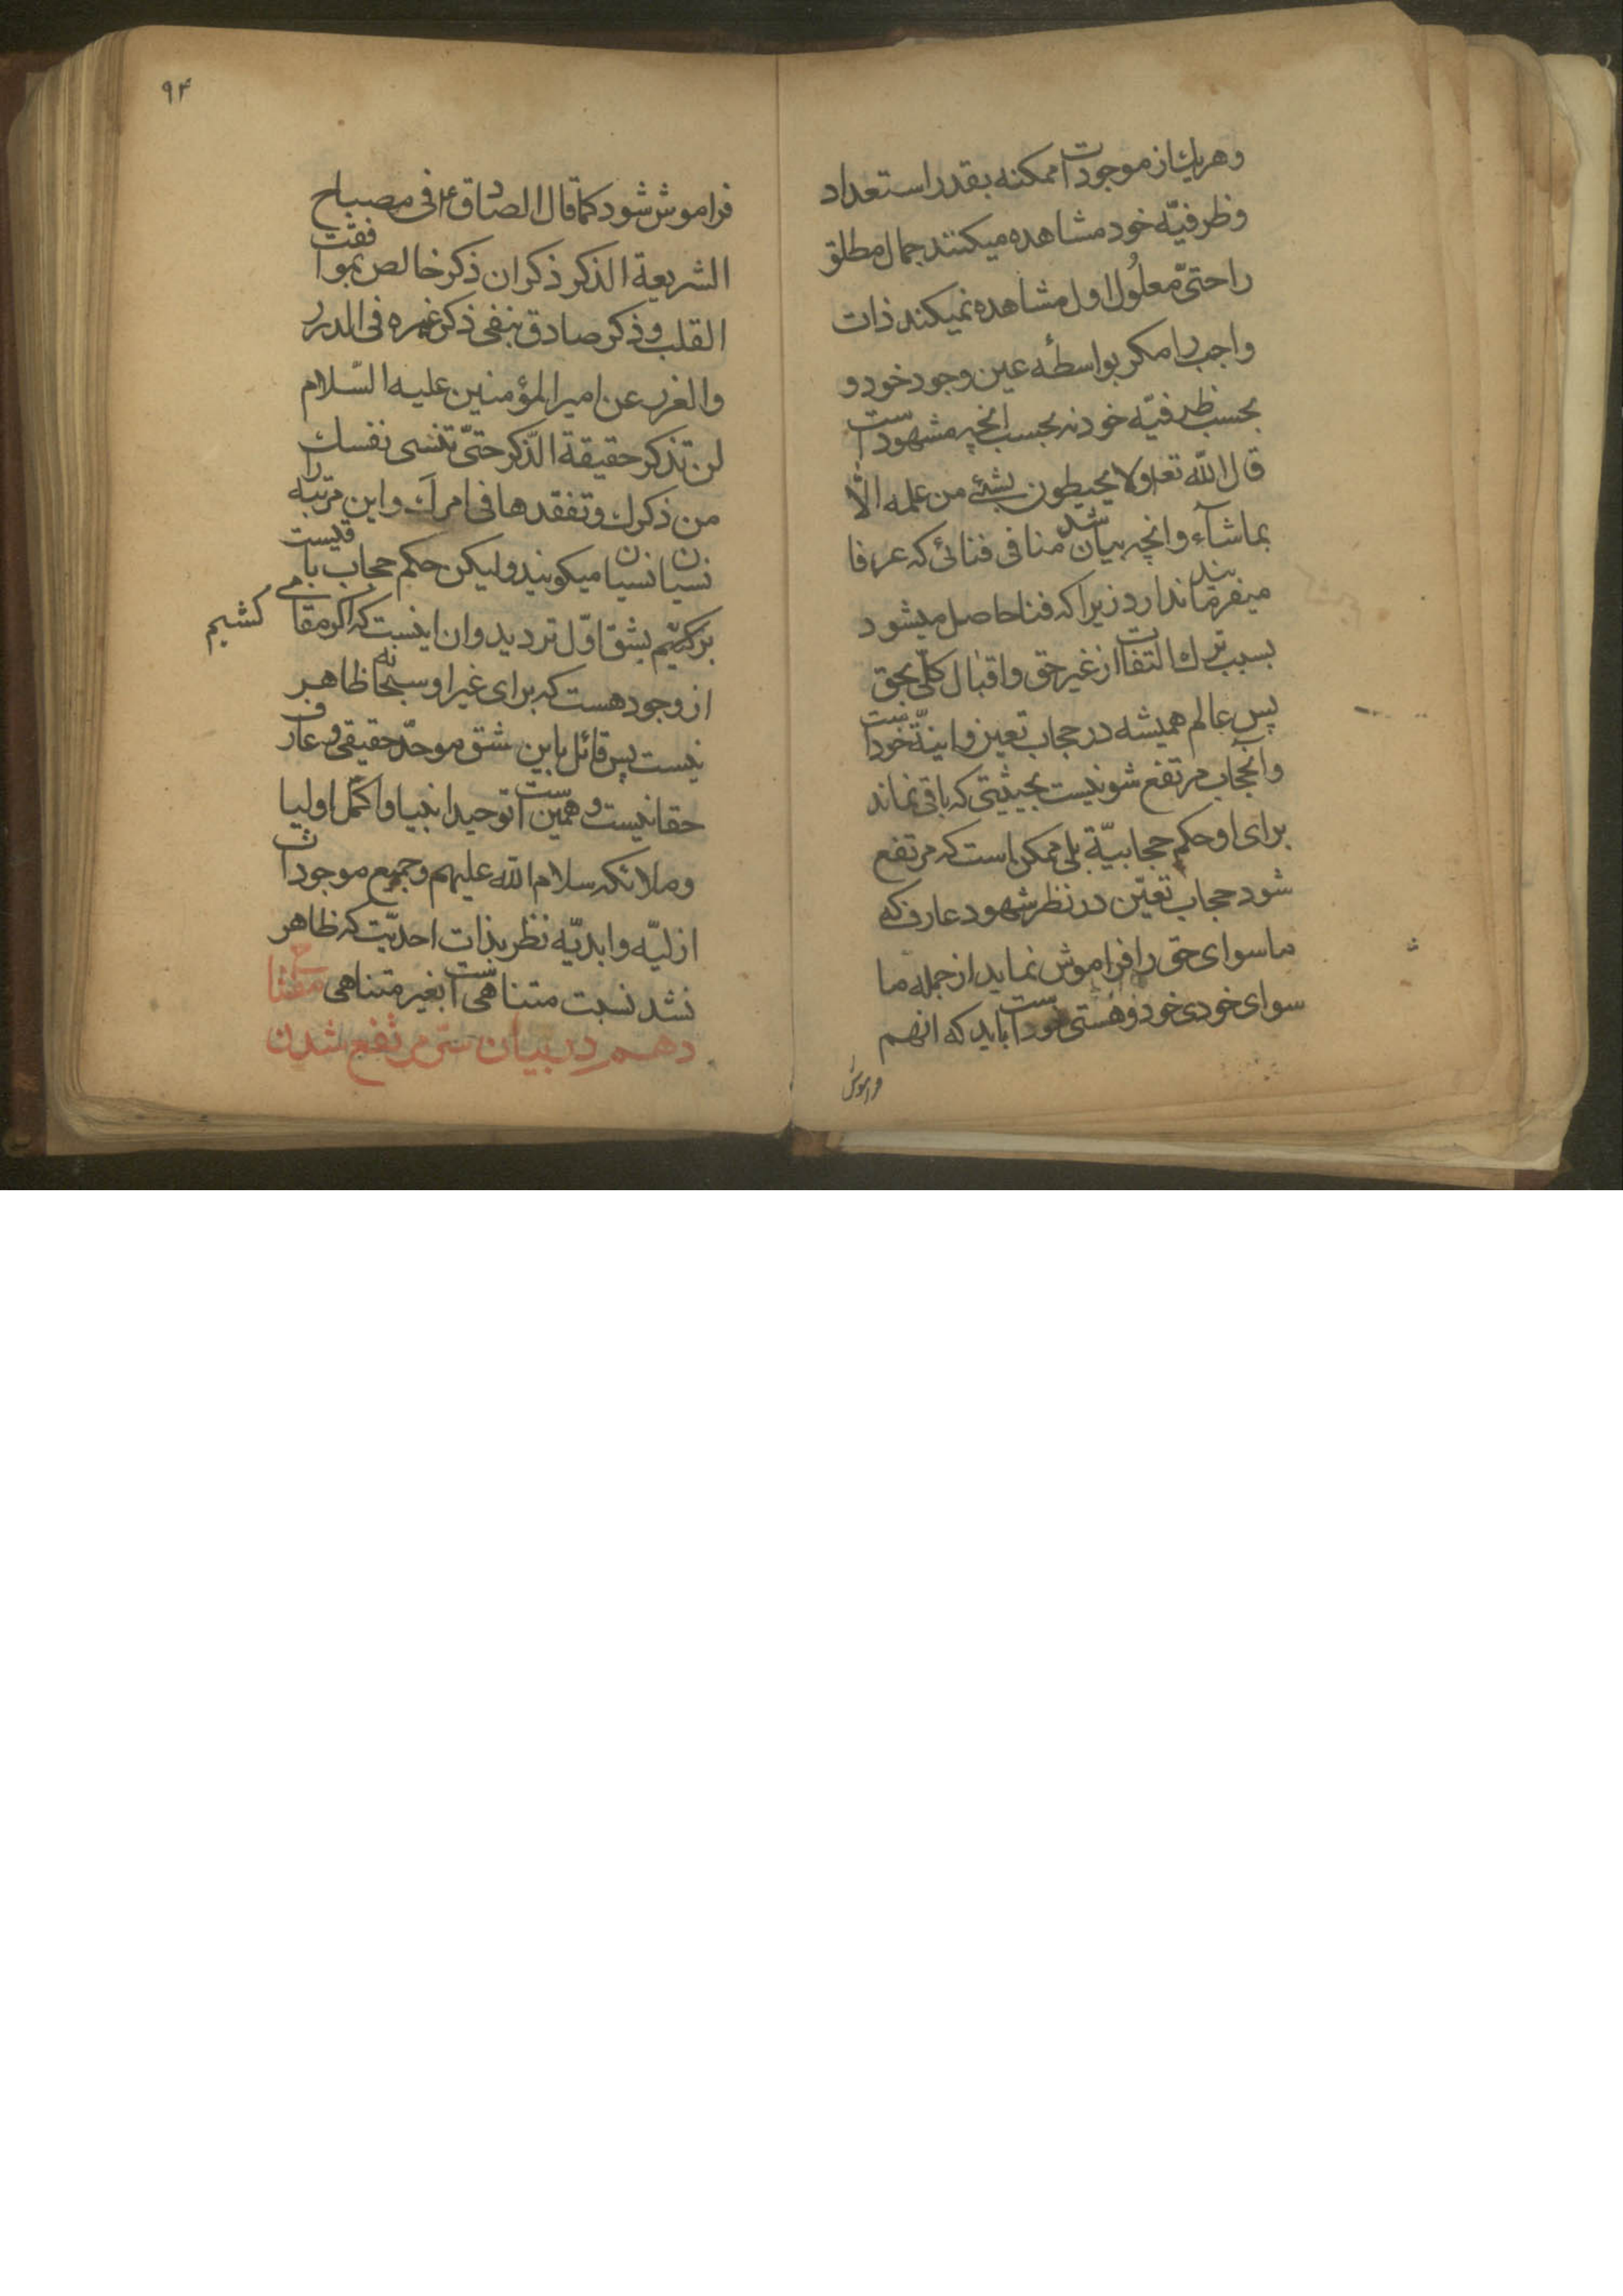 وهریك از موجودات ممكنه بقدر استعداد
وظرفیّه خود مشاهده میكنند جمال مطلق
را حتیّ معلُول اول مشاهده نمیكند ذات
واجب را مكر بواسطهٔ عین وجود خود و
بحسب ظرفیّه خود نه بحسب انچه مشهود است
قال اللّه تعا ولا یحیطون بشئ من علمه الّا
بما شآء وانچه بیان شد منافی فنائی كه عرفا
میفرمایند ندارد زیرا كه فنا حاصل میشود
بسبب ترك التفات از غیر حق واقبال كلّی بحق
پس عالم همیشه در حجاب تعین وانیّه خود است
وانحجاب مرتفع شو نیست بحیثیتی كه باقی نماند
برای او حكم حجابیّة بلی ممكن است كه مرتفع
شود حجاب تعیّن در نظر شهود عارف كه
ماسوای حق را فراموش نماید از جمله ما
سوای خودی خود وهستی خود است باید كه انهم
فراموش
۹۴
فراموش شود كما قال الصادق ع فی مصباح
الشریعة الذكر ذكران ذكر خالص بموافقت
القلب وذكر صادق بنفی ذكر غیره فی الدرر
والغرر عن امیر المؤمنین علیه السّلام
لن تذكر حقیقة الذّكر حتیّ تنسی نفسك
من ذكرك وتفقدها فی امرك واین مرتبه را
نسیان نسیان میكویند ولیكن حكم حجاب باقیست
بركشیم بشق اوّل تردید وان اینست كه اكر مقامی
كشیم
از وجود هست كه برای غیر او سبحانه ظاهر
نیست پس قائل باین شق موحّد حقیقی وعارف
حقانیست وهمین است توحید انبیا واكمّل اولیا
وملائكه سلام اللّه علیهم وجمیع موجودات
ازلیّه وابدیّه نظر بذات احدیّت كه ظاهر
نشد نسبت متناهی است بغیر متناهی
دهم در بیان مرتفع شدن